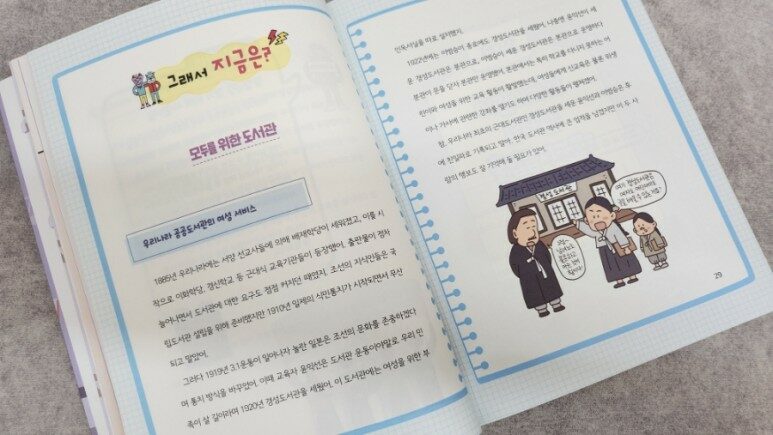 그래서 지금은?
모두를 위한 도서관
우리나라 공공도서관의 여성 서비스
1885년 우리나라에는 서양 선교사들에 의해 배재학당이 세워졌고, 이를 시
작으로 이화학당, 경신학교 등 근대식 교육기관들이 등장했어. 출판물이 점차
늘어나면서 도서관에 대한 요구도 점점 커지던 때였지. 조선의 지식인들은 국
립도서관 설립을 위해 준비했지만 1910년 일제의 식민통치가 시작되면서 무산
되고 말았어.
그러다 1919년 3.1운동이 일어나자 놀란 일본은 조선의 문화를 존중하겠다
며 통치 방식을 바꾸었어. 이때 교육자 윤익선은 도서관 운동이야말로 우리 민
족이 살 길이라며 1920년 경성도서관을 세웠어. 이 도서관에는 여성을 위한 부
인독서실을 따로 설치했지.
1922년에는 이범승이 종로에도 경성도서관을 세웠어. 나중엔 윤익선이 세
운 경성도서관은 분관으로, 이범승이 세운 경성도서관은 본관으로 운영하다
분관이 문을 닫자 본관만 운영했어. 본관에서는 특히 학교를 다니지 못하는 어
린이와 여성을 위한 교육 활동이 활발했는데, 여성들에게 신교육은 물론 위생
이나 가사에 관련한 강좌를 열기도 하며 다양한 활동들이 펼쳐졌어.
참, 우리나라 최초의 근대도서관인 경성도서관을 세운 윤익선과 이범승은 후
에 친일파로 기록되고 말아. 한국 도서관 역사에 큰 업적을 남겼지만 이 두 사
람의 행보도 잘 기억해 둘 필요가 있어.
경성 도서관
여기 경성도서관은
29